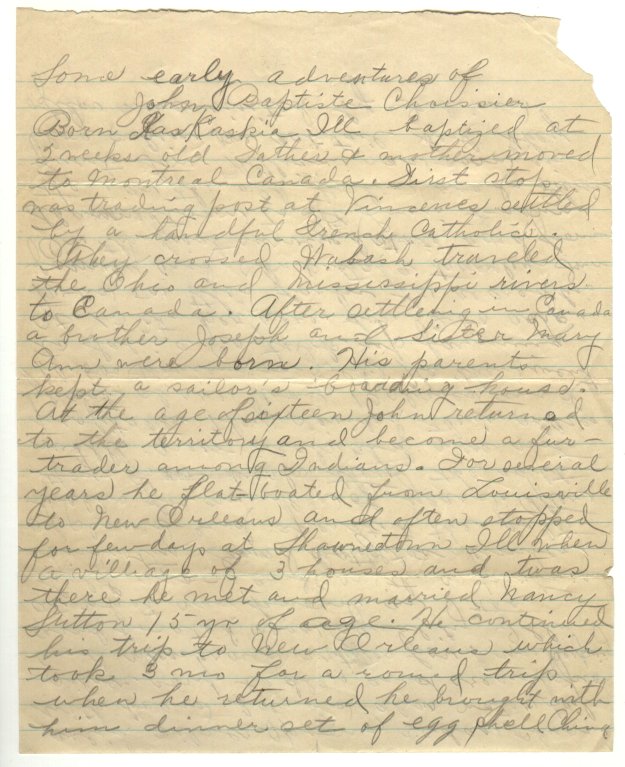 Some early adventures of
John Baptiste Choissier
Born Kaskaskia Ill baptized at
3 weeks old Father & mother moved
to Montreal Canada. First stop
was trading post at Vincenes settled
by a handful French Catholic.
They crossed Wabash traveled
the Ohio and Mississippi rivers
to Canada. After settleing in Canada
a brother Joseph and Sister Mary
Ann were born. His parents
kept a sailor's boarding house.
At the age of sixteen John returned
to the territory and become a fur-
trader among Indians. For several
years he flat-boated from Louisville
to New Orleans and often stopped
for few days at Shawnetown Ill when
a villiage of 3 houses and twas
there he met and married Nancy
Sutton 15 yr of age. He continued
his trip to New Orleans which
took 3 mo for a round trip
when he returned he brought with
him dinner set of egg shell China